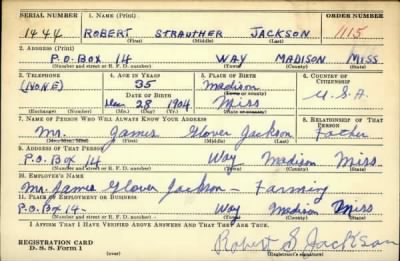 SERIAL NUMBER 1. NAME (Print) ORDER NUMBER
1444 ROBERT STRAUTHER JACKSON 1115
(First) (Middle) (Last)
2. ADDRESS (Print)
P.O. BOX 14 WAY MADISON MISS
(Number and street or R. F. D. number) (Town) (County) (State)
3. TELEPHONE 4. AGE IN YEARS 5. PLACE OF BIRTH 6. COUNTRY OF CITIZENSHIP
(NONE) 35 Madison
DATE OF BIRTH (Town or county)
28 1904 Miss U.S.A.
(Exchange) (Number) (Mo.) (Day) (Yr.) (State or country)
7. NAME OF PERSON WHO WILL ALWAYS KNOW YOUR ADDRESS 8. RELATIONSHIP OF THAT PERSON
Mr. James Glover Jackson Father
(Mr., Mrs., Miss) (First) (Middle) (Last)
9. ADDRESS OF THAT PERSON
P.O. Box 14 Way Madison Miss.
(Number and street or R. F. D. number) (Town) (County) (State)
10. EMPLOYER'S NAME
Mr. James Glover Jackson - Farming
11. PLACE OF EMPLOYMENT OR BUSINESS
P.O. Box 14 - Way Madison Miss
(Number and street or R. F. D. number) (Town) (County) (State)
I AFFIRM THAT I HAVE VERIFIED ABOVE ANSWERS AND THAT THEY ARE TRUE.
REGISTRATION CARD
D. S. S. Form 1 (over) Robert S. Jackson
(Registrant's signature)